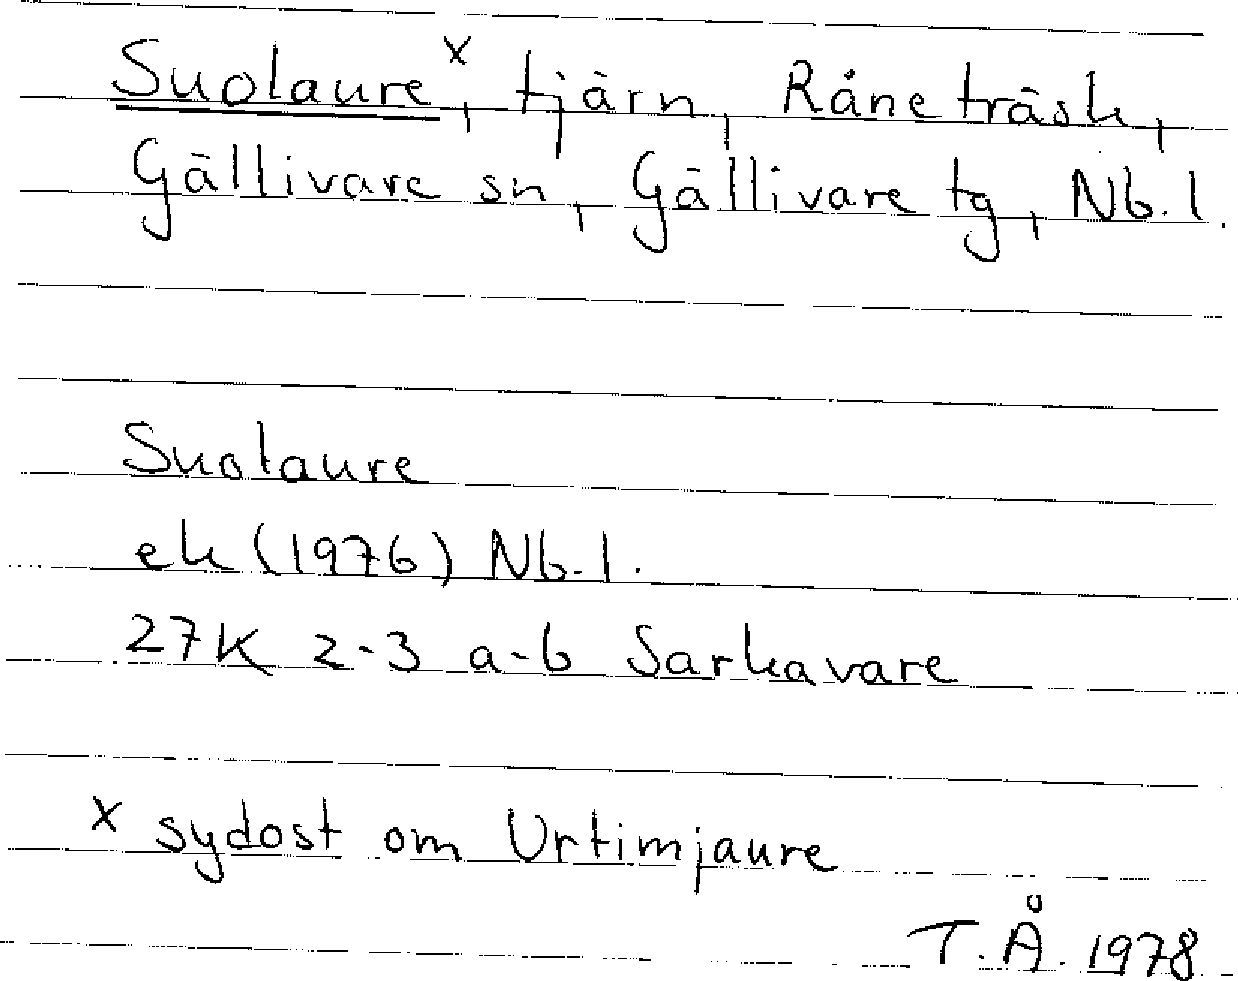 Suolaure x, tjärn, Råneträsk,
Gällivare sn, Gällivare tg, Nb. l.
Suolaure
ek (1976) Nb. l.
27K 2-3 a-b Sarkavare
x sydost om Urtimjaure
T.Å. 1978